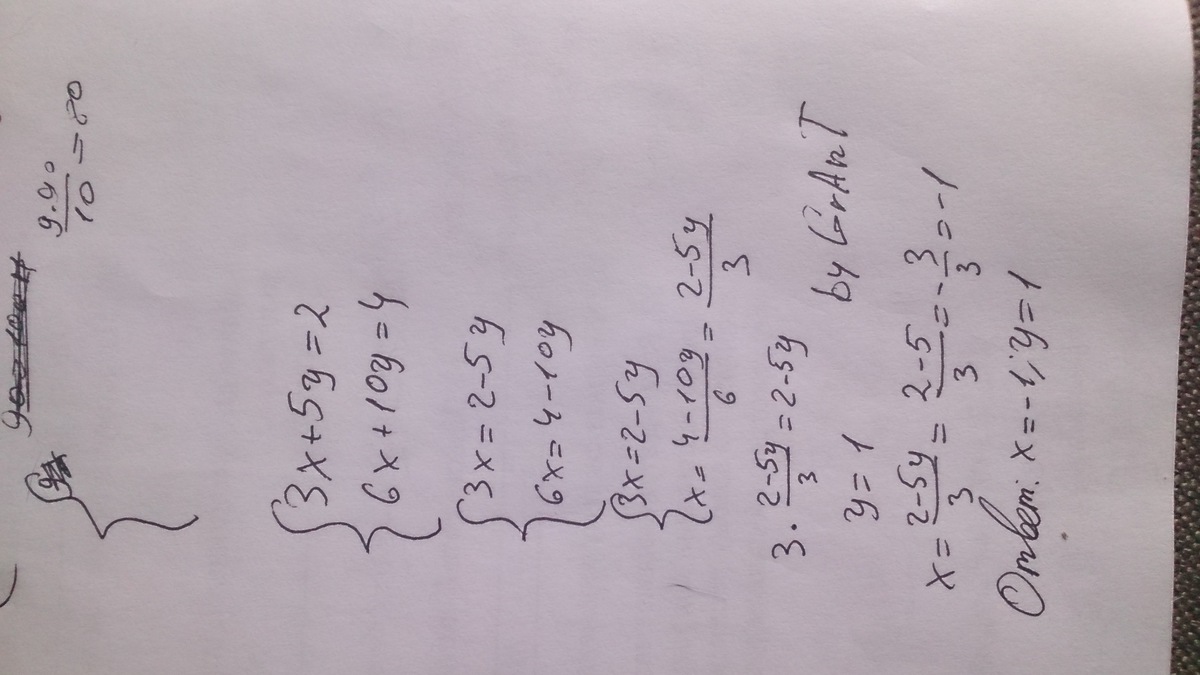 9·90/10=80
3x+5y=2
6x+10y=4
3x=2-5y
6x=4-10y
3x=2-5y
x=4-10y/6=2-5y/3
3·2-5y/3=2-5y
y=1 by GrAnT
x=2-5y/3=2-5/3=-3/3=-1
Ответ: x=-1; y=1